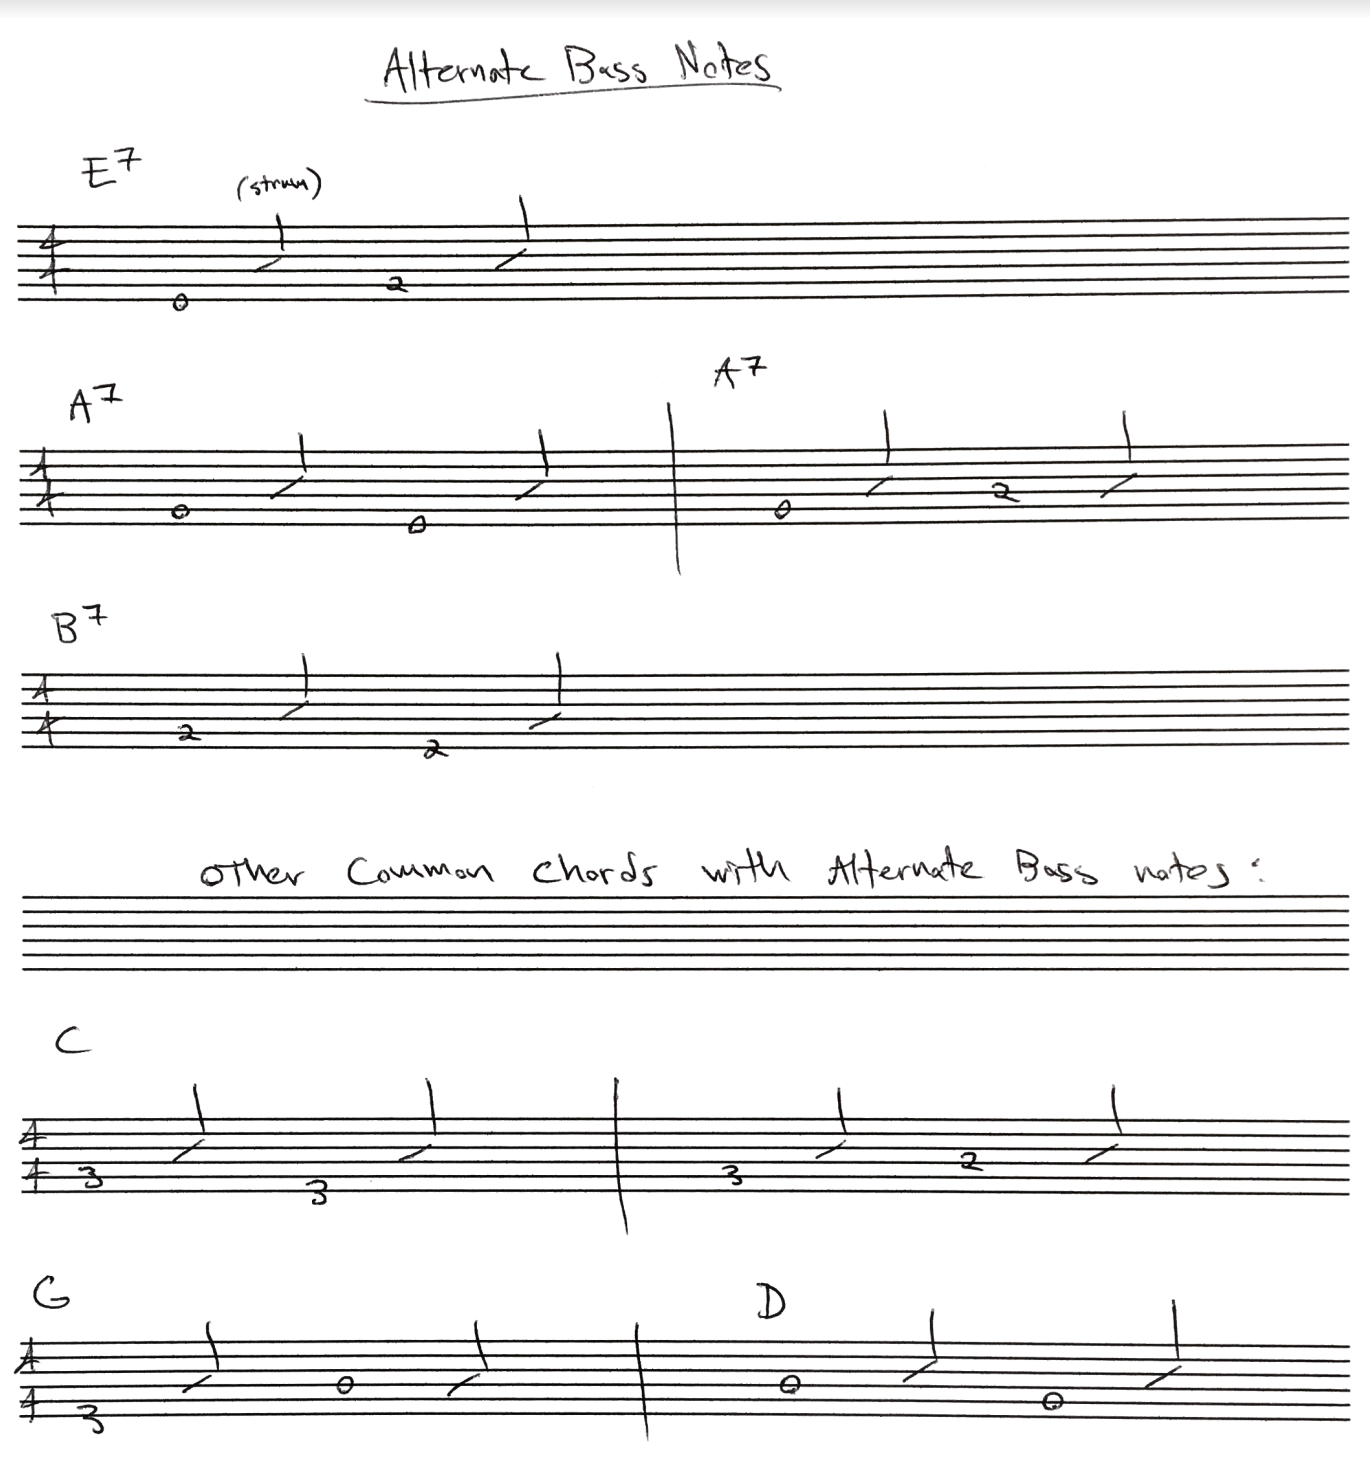 Alternate Bass Notes
E7
(strum)
4
4
0 2
A7 A7
4
4
0 0 0 2
B7
4
4
2 2
other Common Chords with Alternate Bass notes:
C
4
4
3 3 3 2
G D
4
4
3 0 0 0